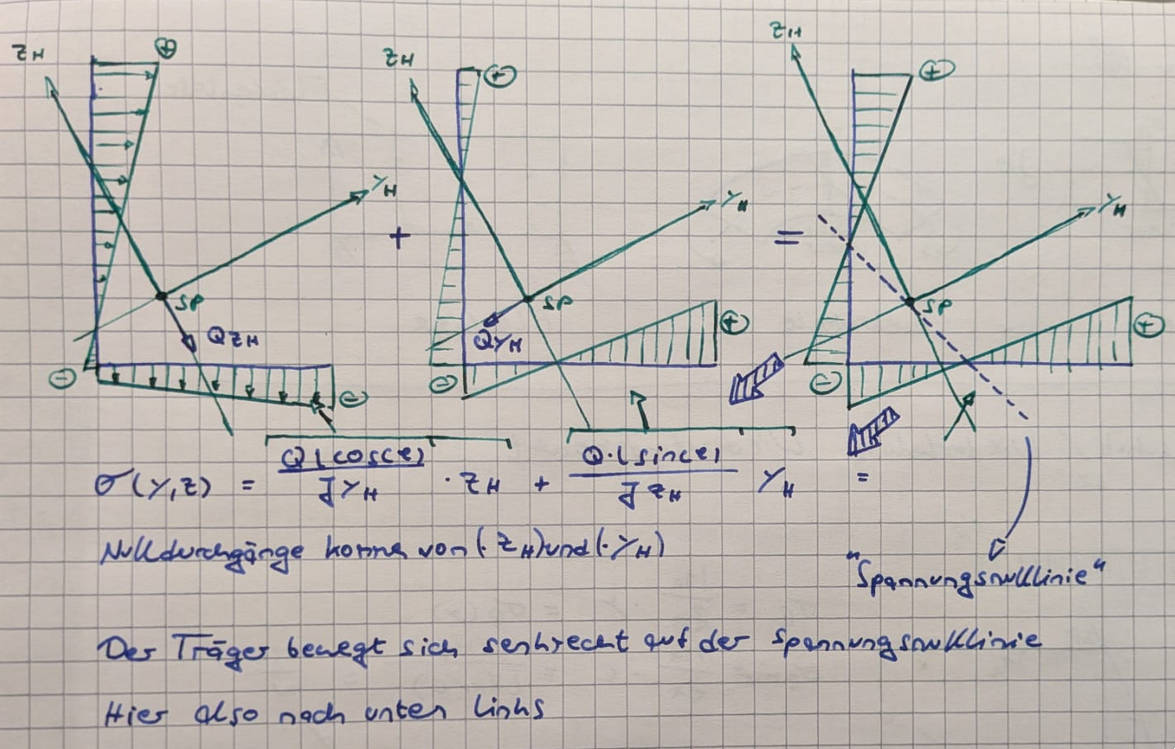 zH ⊕ zH ⊕ zH ⊕
yH yH yH
+ =
SP SP SP
QzH QyH ⊕ ⊕
⊖ ⊖ ⊖ ⊖
σ(y,z) = Q(cos(α) / JyH · zH + Q·(sin(α) / JzH yH =
Nulldurchgänge komme von (· zH) und (· yH)
"Spannungsnulllinie"
Der Träger bewegt sich senkrecht auf der Spannungsnulllinie
Hier also nach unten links